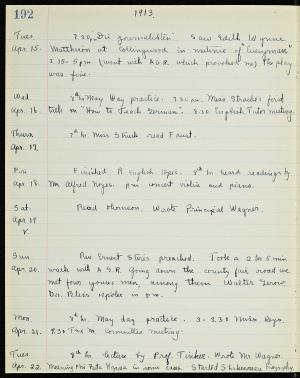 192
1913.
Tues. 3.20, "Die Journalisten" Saw Edith Wynne
Apr. 15. Matthison at Collingwood in matinée of "Everyman"
2.15-5 pm (went with A.G.R. which provoked me) The play
was fine.
Wed. 8th May Day practice. 7.30 p.m. Miss Stracke's ford
Apr. 16. talk on "How to Teach German". 8.30 English Tutor meeting.
Thurs. 7th hr Miss Struck read Faust.
Apr. 17.
Fri Finished English 8th hr heard readings by
Apr. 18 Mr Alfred Noyes. pm concert violin and piano.
Sat. Read Thomson. Wrote Principal Wagner.
Apr 19
Sun Rev. Ernest Stires preached. Took a 2 hr 5 min
Apr. 20. walk with A.G.R. Going down the county fair road we
met four young men, among them Walter
Dr. in p.m.
Mon. 8th hr. May day practice. 3-3.30 Miss
Apr. 21. 9.30 Committee meeting.
Tues. 8th hr. lecture by Prof. Tinker. Wrote Mr. Wagner.
Apr. 22. Started Shakespeare